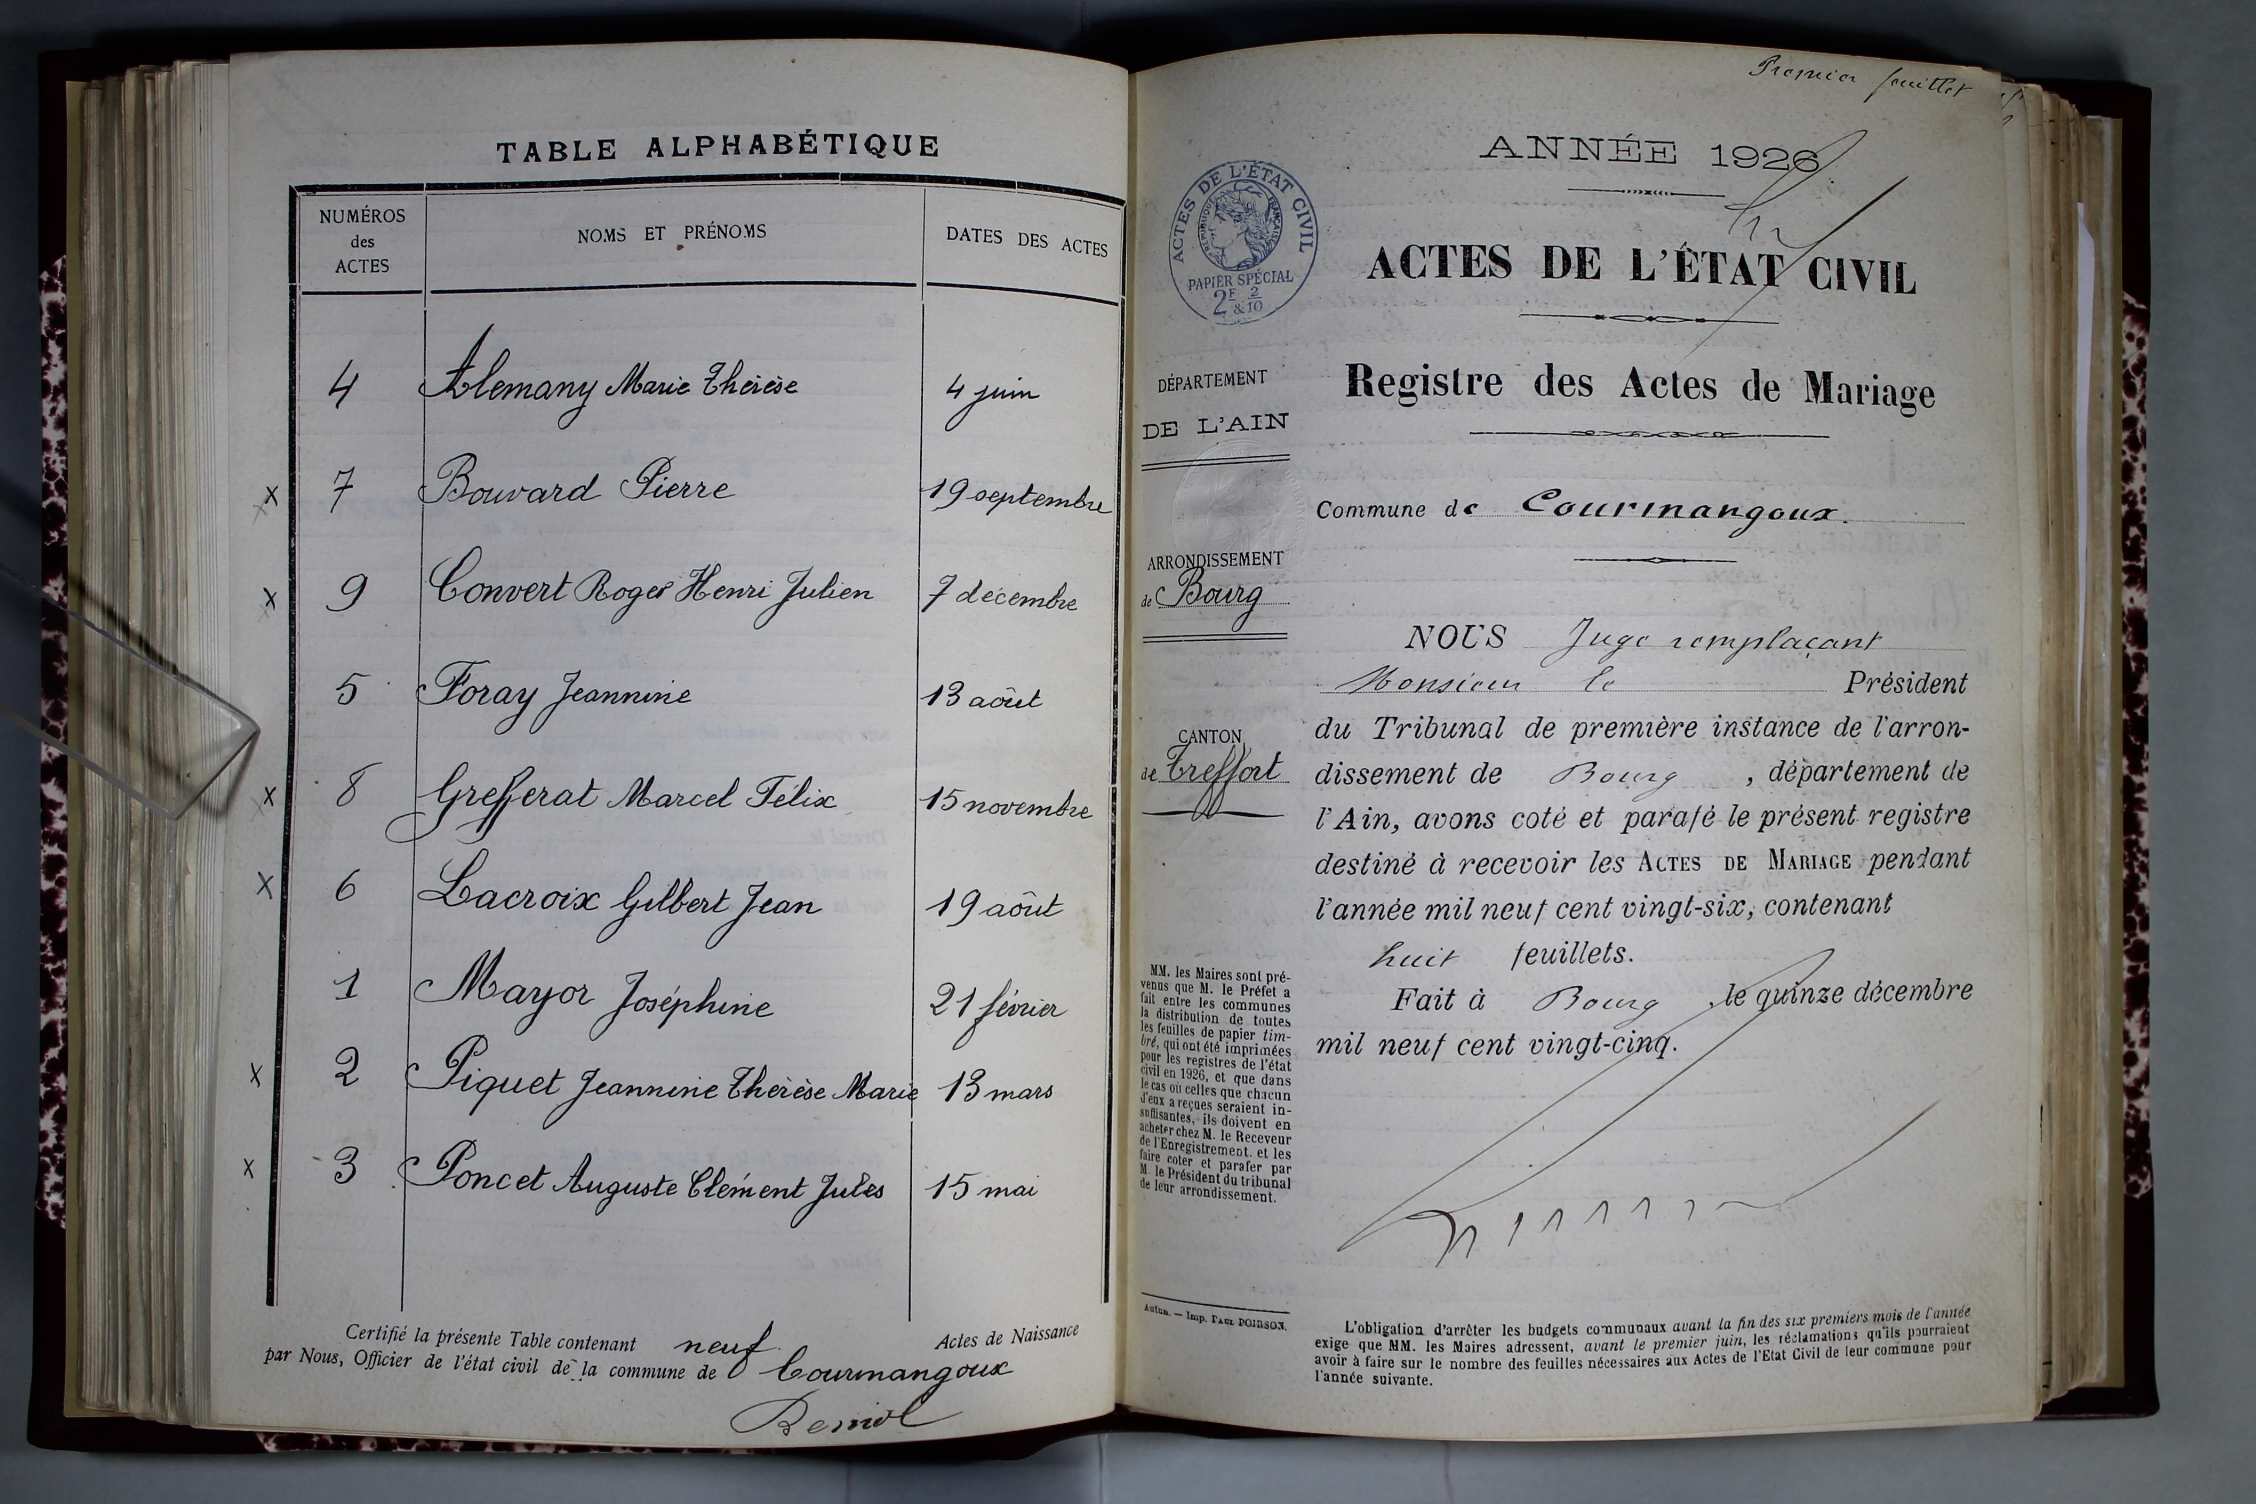 TABLE ALPHABÉTIQUE
NUMÉROS des ACTES
NOMS ET PRÉNOMS
DATES DES ACTES
4 Alemany Marie Thérèse 4 juin
x 7 Bouvard Pierre 19 septembre
x 9 Convert Roger Henri Julien 7 décembre
5 Foray Jeannine 13 août
x 8 Grefferat Marcel Félix 15 novembre
x 6 Lacroix Gilbert Jean 19 août
1 Mayor Joséphine 21 février
x 2 Piquet Jeannine Thérèse Marie 13 mars
x 3 Poncet Auguste Clément Jules 15 mai
Certifié la présente Table contenant neuf Actes de Naissance
par Nous, Officier de l'état civil de la commune de Courmangoux
Premier feuillet
ANNÉE 1926
ACTES DE L'ÉTAT CIVIL
RÉPUBLIQUE FRANÇAISE
PAPIER SPÉCIAL
2F & 2/10
ACTES DE L'ÉTAT CIVIL
Registre des Actes de Mariage
DÉPARTEMENT
DE L'AIN
Commune de Courmangoux.
ARRONDISSEMENT
de Bourg
CANTON
de Treffort
NOUS Juge remplaçant
Monsieur le Président
du Tribunal de première instance de l'arron-
dissement de Bourg, département de
l'Ain, avons coté et parafé le présent registre
destiné à recevoir les ACTES DE MARIAGE pendant
l'année mil neuf cent vingt-six, contenant
huit feuillets.
Fait à Bourg, le quinze décembre
mil neuf cent vingt-cinq.
MM. les Maires sont pré-
venus que M. le Préfet a
fait entre les communes
la distribution de toutes
les feuilles de papier tim-
bré, qui ont été imprimées
pour les registres de l'état
civil en 1926, et que dans
le cas où celles que chacun
d'eux a reçues seraient in-
suffisantes, ils doivent en
acheter chez M. le Receveur
de l'Enregistrement, et les
faire coter et parafer par
M. le Président du tribunal
de leur arrondissement.
Autun. — Imp. PAUL POIRSON.
L'obligation d'arrêter les budgets communaux avant la fin des six premiers mois de l'année
exige que MM. les Maires adressent, avant le premier juin, les réclamations qu'ils pourraient
avoir à faire sur le nombre des feuilles nécessaires aux Actes de l'Etat Civil de leur commune pour
l'année suivante.